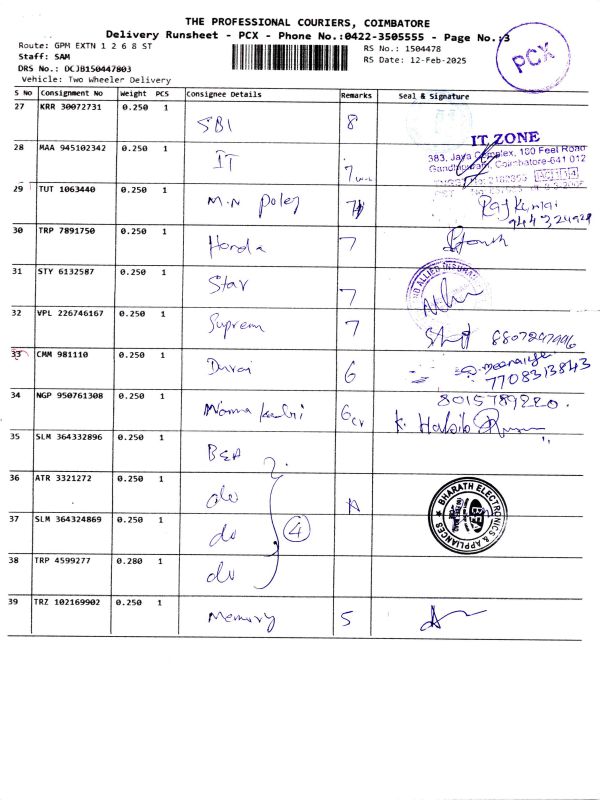 THE PROFESSIONAL COURIERS, COIMBATORE
Delivery Runsheet - PCX - Phone No.:0422-3505555 - Page No.:3
Route: GPM EXTN 1 2 6 8 ST
Staff: SAM
DRS No.: DCJB150447803
Vehicle: Two Wheeler Delivery
RS No.: 1504478
RS Date: 12-Feb-2025
PCX
S No Consignment No Weight PCS Consignee Details Remarks Seal & Signature
27 KRR 30072731 0.250 1 SBI 8
28 MAA 945102342 0.250 1 IT 7
IT ZONE
383, Jaya Complex, 100 Feet Road
Gandhipuram, Coimbatore-641 012
29 TUT 1063440 0.250 1 M.N Poley 7 Rajkumar
30 TRP 7891750 0.250 1 Honda 7
31 STY 6132587 0.250 1 Star 7
32 VPL 226746167 0.250 1 Suprem 7 8807247996
33 CMM 981110 0.250 1 Durai 6
7708313843
34 NGP 950761308 0.250 1 6 8015789220.
K. Habib
35 SLM 364332896 0.250 1
36 ATR 3321272 0.250 1 do A
BHARATH ELECTRONICS & APPLIANCES
37 SLM 364324869 0.250 1 do 4
38 TRP 4599277 0.280 1 do
39 TRZ 102169902 0.250 1 Memory 5